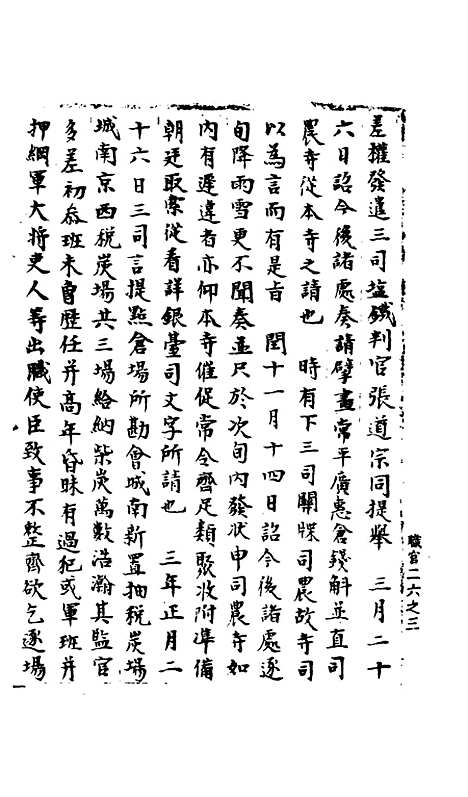 差權發遣三司塩鐵判官張道宗同提舉　三月二十
六日詔今後諸處奏請擘畫常平廣惠倉錢斛並直司
農寺從本寺之請也　時有下三司關牒司農故寺司
以為言而有是旨　閏十一月十四日詔今後諸處逐
旬降雨雪更不聞奏並尺於次旬內發狀申司農寺如
內有遲違者亦仰本寺催促常令齊足類聚收附準備
朝廷取索從看詳銀臺司文字所請也　三年正月二
十六日三司言提㸃倉塲所勘會城南新置抽税炭場
城南京西税炭場共三場給納柴炭萬數浩瀚其監官
多差初叅班未曾歴任并高年昏昧有過犯或軍班并
押綱軍大將吏人等出職使臣致事不整齊欲乞逐場
職官二六之三